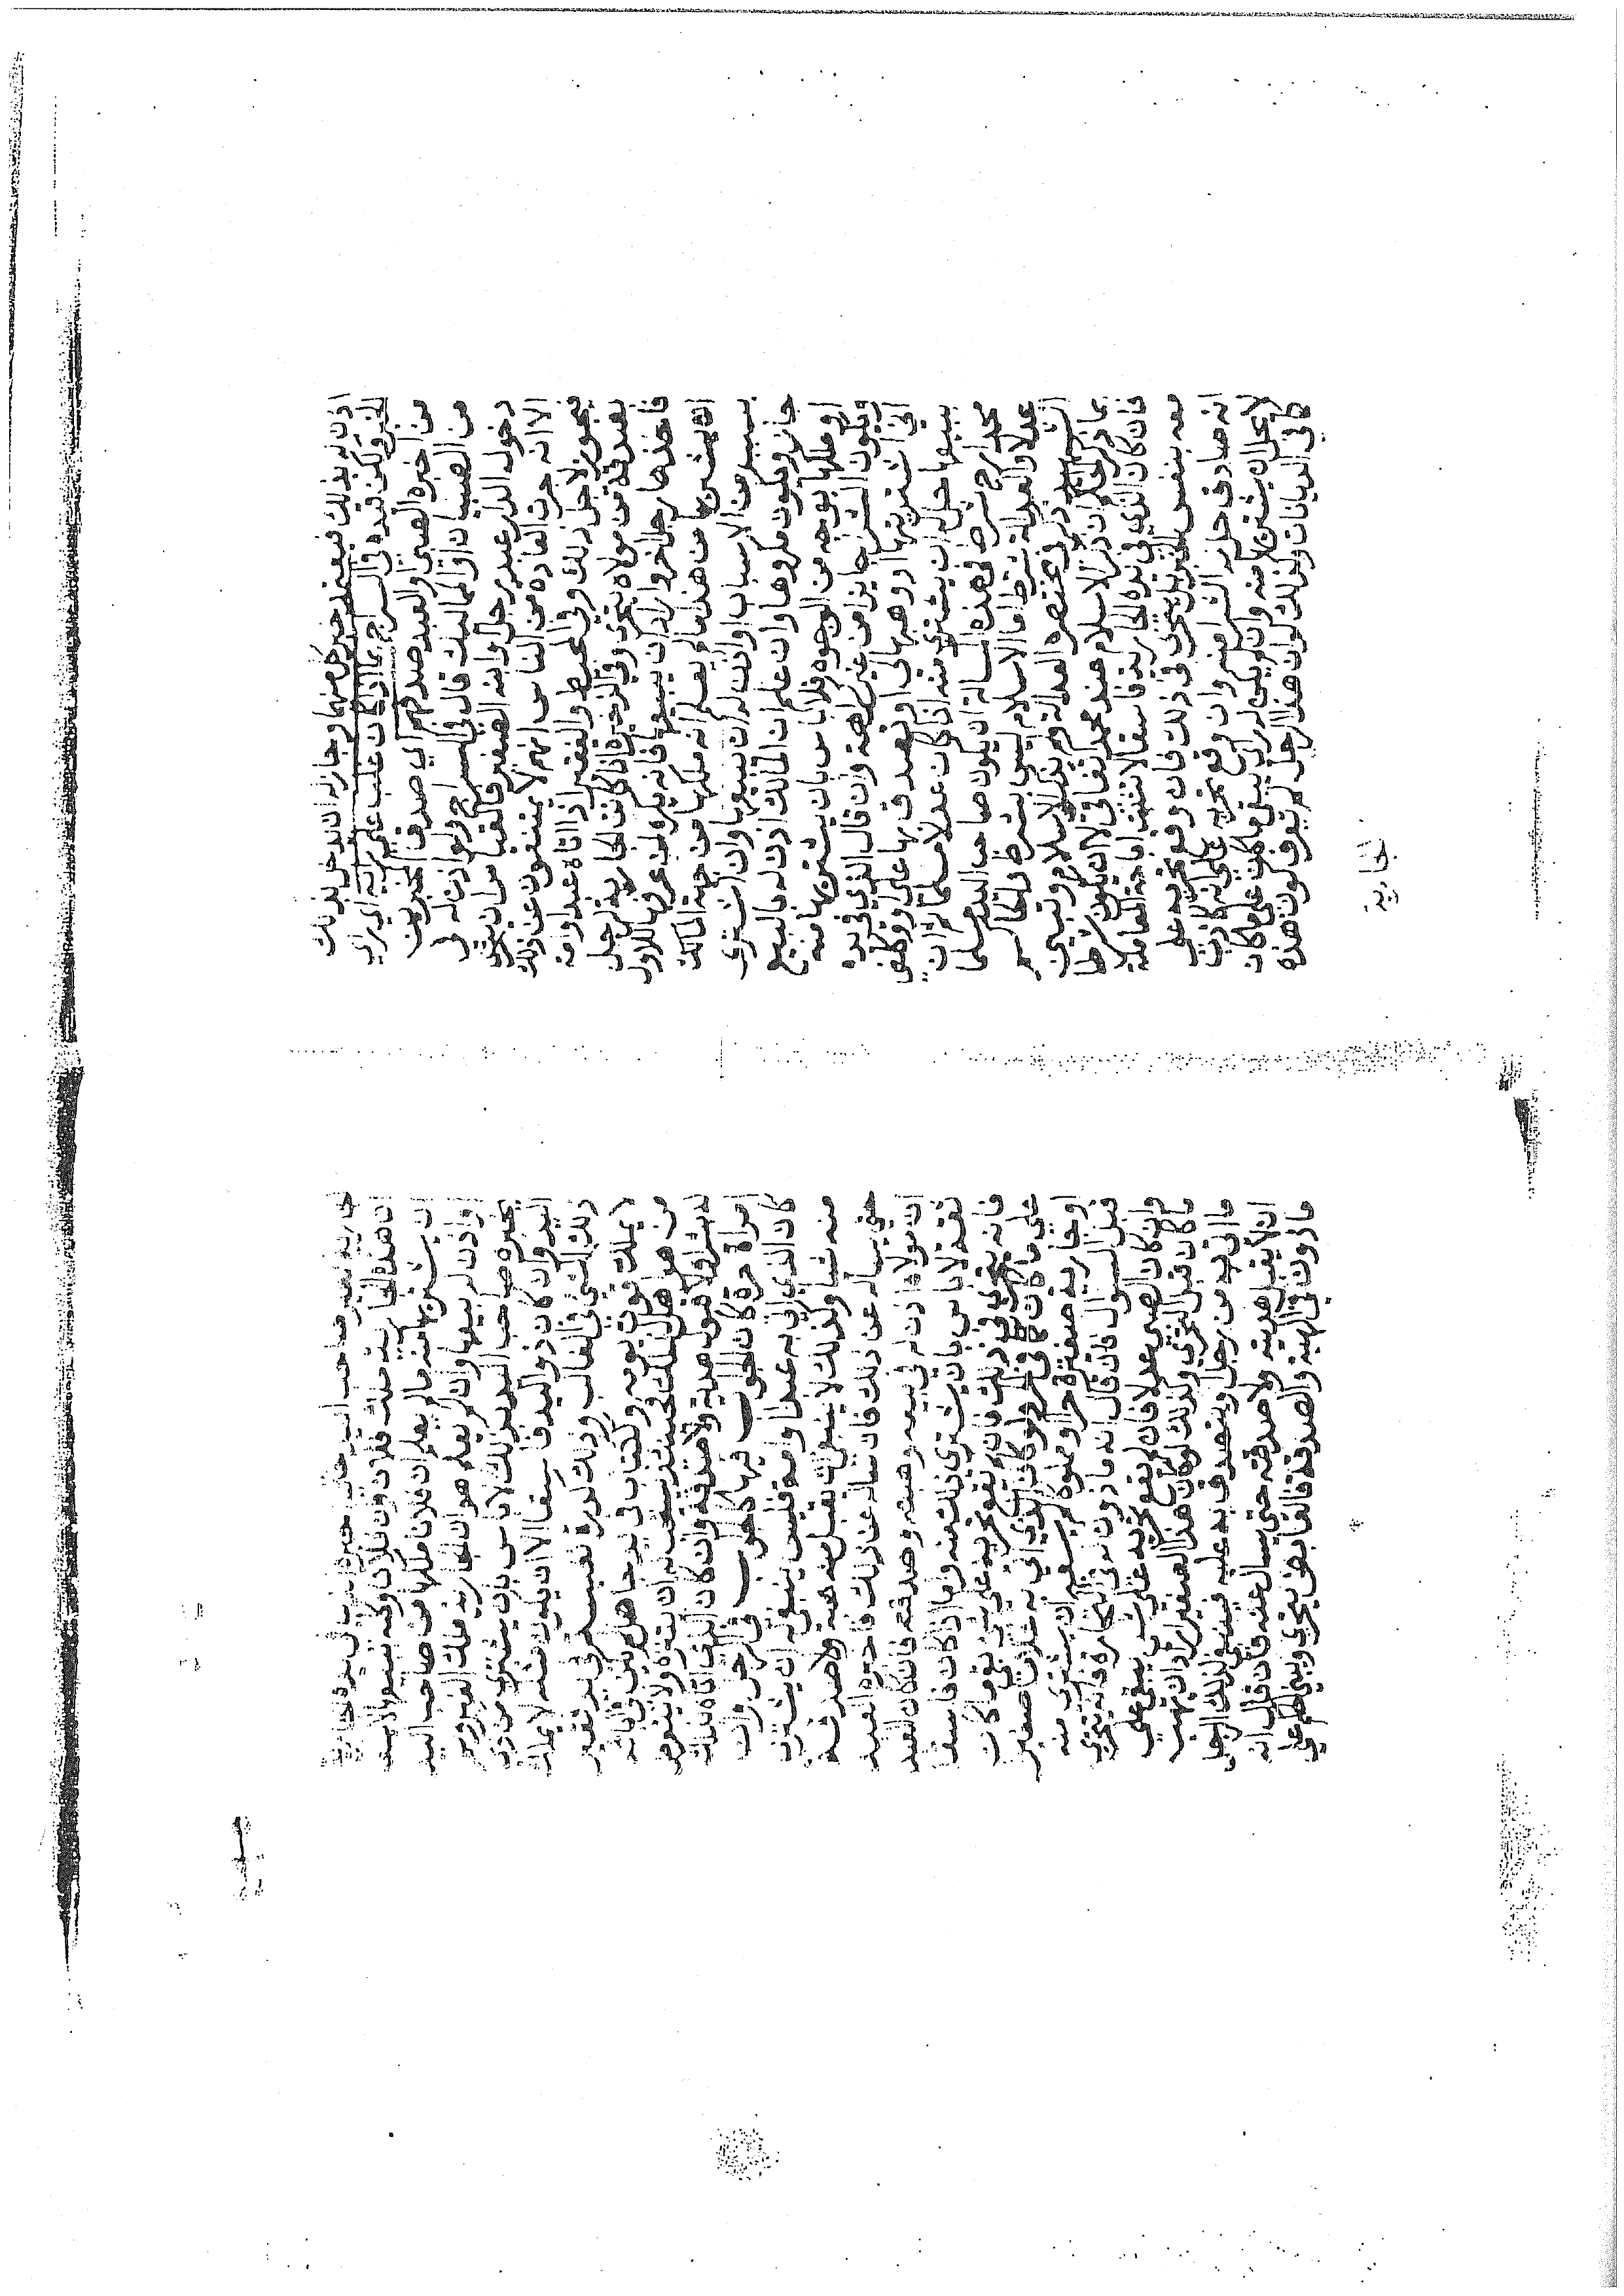 اذن له بذلك فيعتمد خبر كل منهما وجاز له ان يدخل بذلك
الخبر ولكن قيده في السراج بما اذا كان غلب على رايه اي راي
من اخبره الصبي والعبد صدقهم اي صدق المخبرين
من الصبيان او المماليك قال في السراج ولو اذن له في
دخول الدار عبد رجل او ابنه الصغير فالقياس ان يتحرى
الا انه جرت العادة من الناس انهم لا يمتنعون عن ذلك
فيجوز لاجل ذلك وفي المحيط والفقير اذا اتاه عبد او امة
بصدقة من مولاه يتحرى وفي الذخيرة اذا كانت الجارية لرجل
فاخذها رجل اخر واراد ان يبيعها فانه يكره لمن عرفها للاول
ان يشتريها من هذا ما لم يعلم انه ملكها من جهة المالك
بسبب من الاسباب او اذن له ان يبيعها وان اشترى
جاز ويكون مكروها وان علم ان المالك اذن له بالبيع
او ملكها بوجه من الوجوه فلا باس بان يشتريها منه
ويكون الشرا جايزا من غير كراهة وان قال الذي في يده
اني اشتريتها او وهبها لي او تصدق بها علي او وكلني
ببيعها حل له ان يشتري منه اذا كان عدلا مسلما ثم ان
محمدا رح شرط في هذه المسالة ان يكون صاحب اليد مسلما
عدلا والعدالة شرط اما الاسلام ليس بشرط والحاكم
الشهيد ذكر في مختصره العدالة ولم يذكر الاسلام وتبين
بما ذكر الحاكم ان ذكر الاسلام عند محمد اتفاقي لا ان يكون شرطا
فان كان الذي في يده الجارية فاسقا لا تثبت اباحة المعاملة
معه بنفس الخبر بل يتحرى في ذلك فان وقع تحريه على
انه صادق حل له الشرا منه وان وقع تحريه على انه كاذب
لا يحل له ان يشتري منه وان لم يكن له راي يبقى ما كان على ما كان
كما في الديانات وكذلك لو ان هذا الرجل لم يعرف كون هذه
الجارية
جارية لغير صاحب اليد حتى اخبره الذي في يده الجارية
ان هذه الجارية ملك فلان وان فلانا وكله ببيعها لا يسعه
ان يشتريها منه ما لم يعلم ان فلانا ملكها من صاحب اليد
او اذن له ببيعها وان لم يعلم هو ان الجارية ملك الغير ولم
يخبره صاحب اليد بذلك لا باس بان يشتري من ذي
اليد وان كان ذو اليد فاسقا الا ان يكون مثله لا يملك
ذلك الشي في الغالب وذلك كدرة نفيسة في يد فقير
لا يملك قوت يومه وككتاب في يد جاهل لم يكن في ابائه
من هو اهل لذلك فحينئذ يستحب له ان يتنزه ولا يتعرض
له بشراء ولا قبول هدية ولا صدقة وان كان الذي اتاه بذلك
امراة حرة كان الجواب فيها كالجواب في الرجل وان
كان الذي اتى به عبدا او امة فليس ينبغي له ان يشتري
منه شيا وكذلك لا ينبغي ان يقبل منه هبة ولا صدقة
حتى يساله عن ذلك فان ساله عن ذلك فاخبره العبد
ان مولاه اذن له في بيعه وهبته وصدقته فان كان العبد
ثقة لا باس بان يشتري ذلك منه واما اذا كان فاسقا
فانه يتحرى في ذلك فان لم يقع تحريه على شي بقي ما كان
على ما كان كما في الحر ولو كان الذي اتى به غلاما صغير
او جارية صغيرة حرا او مملوكا لم يسعه ان يشتري منه
قبل السوال فان قال انه ماذون له في التجارة فانه يتحرى
وان كان الصبي عدلا فان لم يقع تحريه على شي يبقى على
ما كان قبل التحري وكذلك لو كان هذا الصغير اراد ان يهب
ما اتى به من رجل ويتصدق به عليه فينبغي لذلك الرجل
ان لا يقبل هديته ولا صدقته حتى يسال عنه فان قال انه
ماذون في الهبة والصدقة فالقابض يتحرى ويبني الحكم على